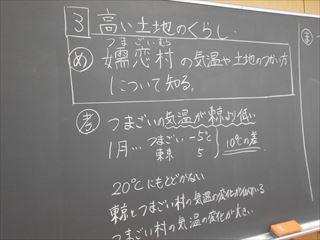 3 高い土地のくらし
つまごいむら
め 嬬恋村の気温や土地のつかい方
について知る。
考 つまごいの気温が東京より低い
1月…つまごい -5℃
東京 5
10℃の差
20℃にもとどかない
東京とつまごい村の気温の変化が似ている
つまごい村の気温の変化が大きい